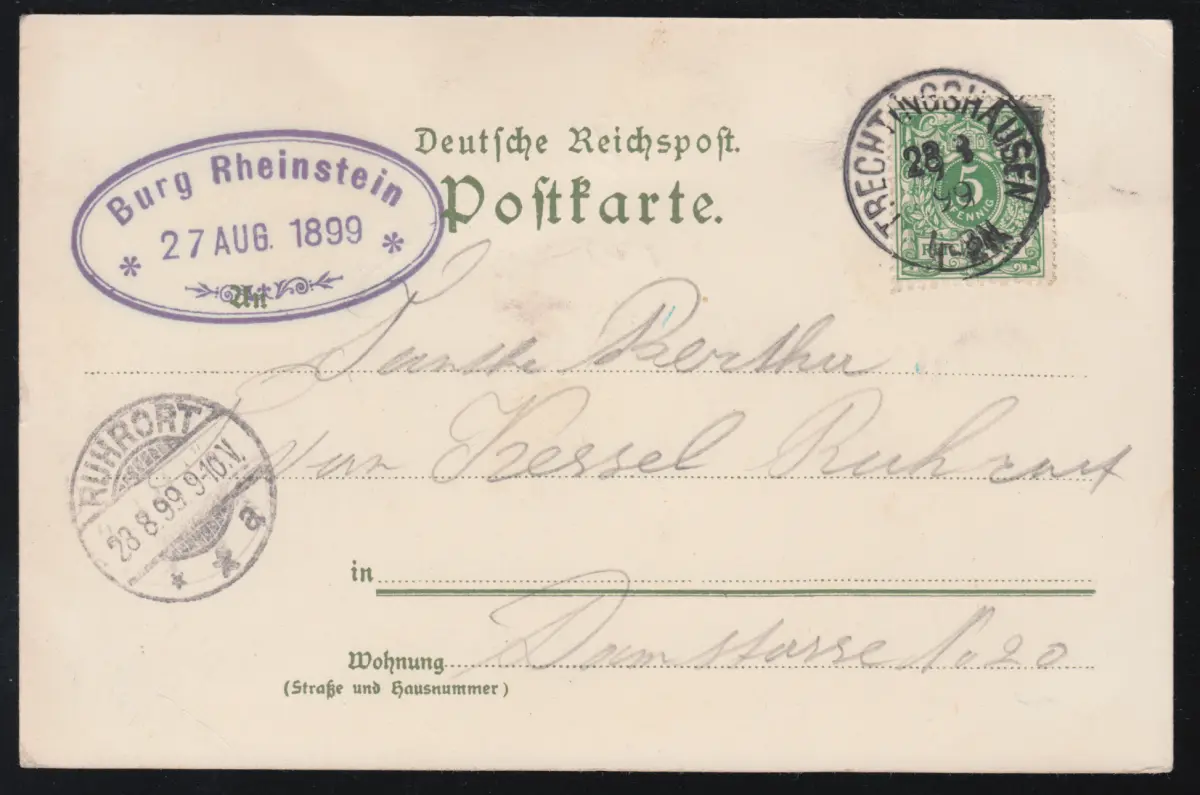 Deutsche Reichspost.
Postkarte.
Burg Rheinstein
* 27 AUG. 1899 *
An
TRECHTINGSHAUSEN
28 8
99
5
PFENNIG
Tante Bertha
van Kessel Ruhrort
RUHRORT
28.8.99 9-10.V.
* * a
in
Wohnung Damstrasse No 20
(Straße und Hausnummer)